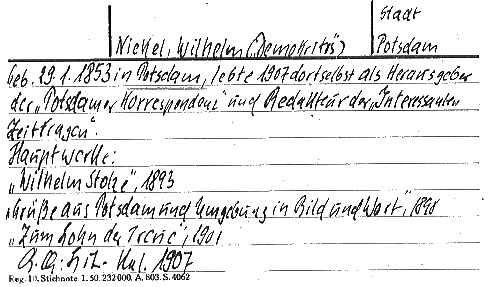 Stadt
Nickel, Wilhelm („Demokritos“) Potsdam
geb. 29.1.1853 in Potsdam, lebte 1907 dortselbst als Herausgeber
der „Potsdamer Korrespondenz“ und Redakteur der „Interessanten
Zeitfragen“.
Hauptwerke:
„Wilhelm Stolze“, 1893
„Grüße aus Potsdam und Umgebung in Bild und Wort“, 1898
„Zum Lohn der Treue“, 1901
Lit.-Kal. 1907
Reg. 10. Stichnote 1. 50. 232000. A. 803. S. 4062